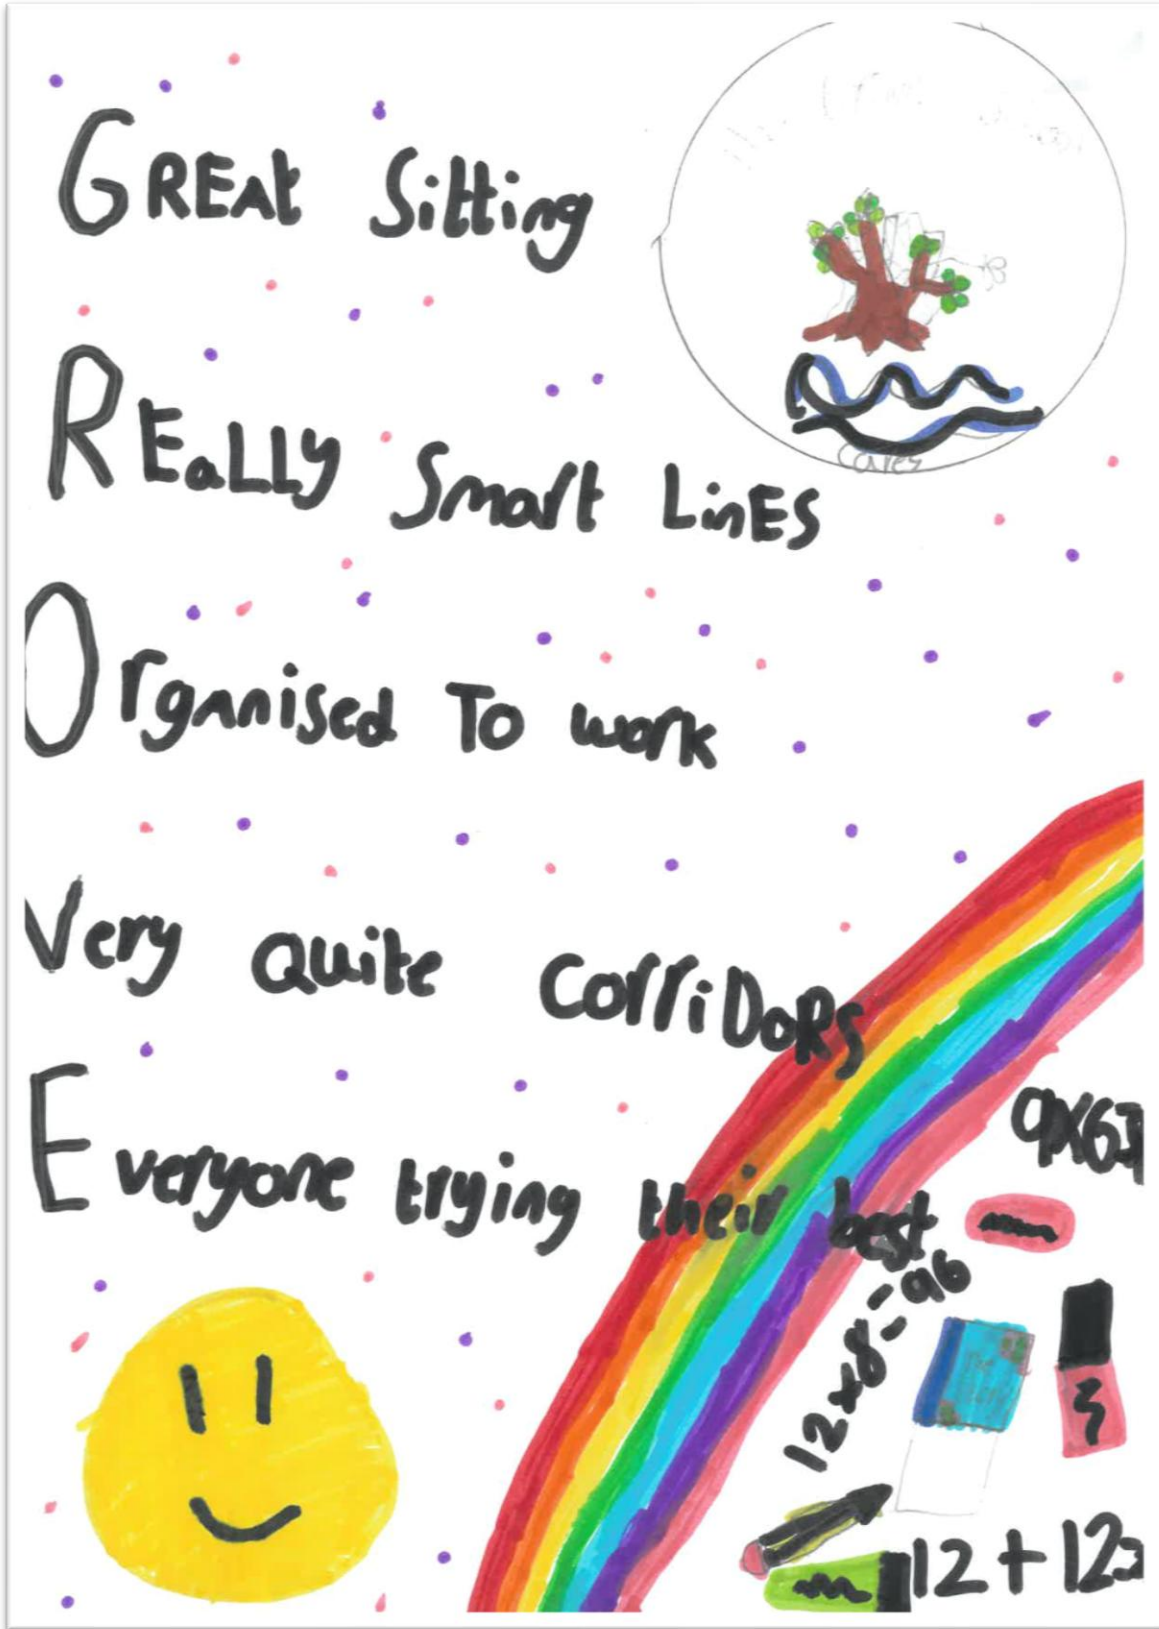 GREAt Sitting
cares
REaLLy Smart LinES
Organised To work
Very Quite CorriDoRS
Everyone trying their best
12x8=96
12+12=